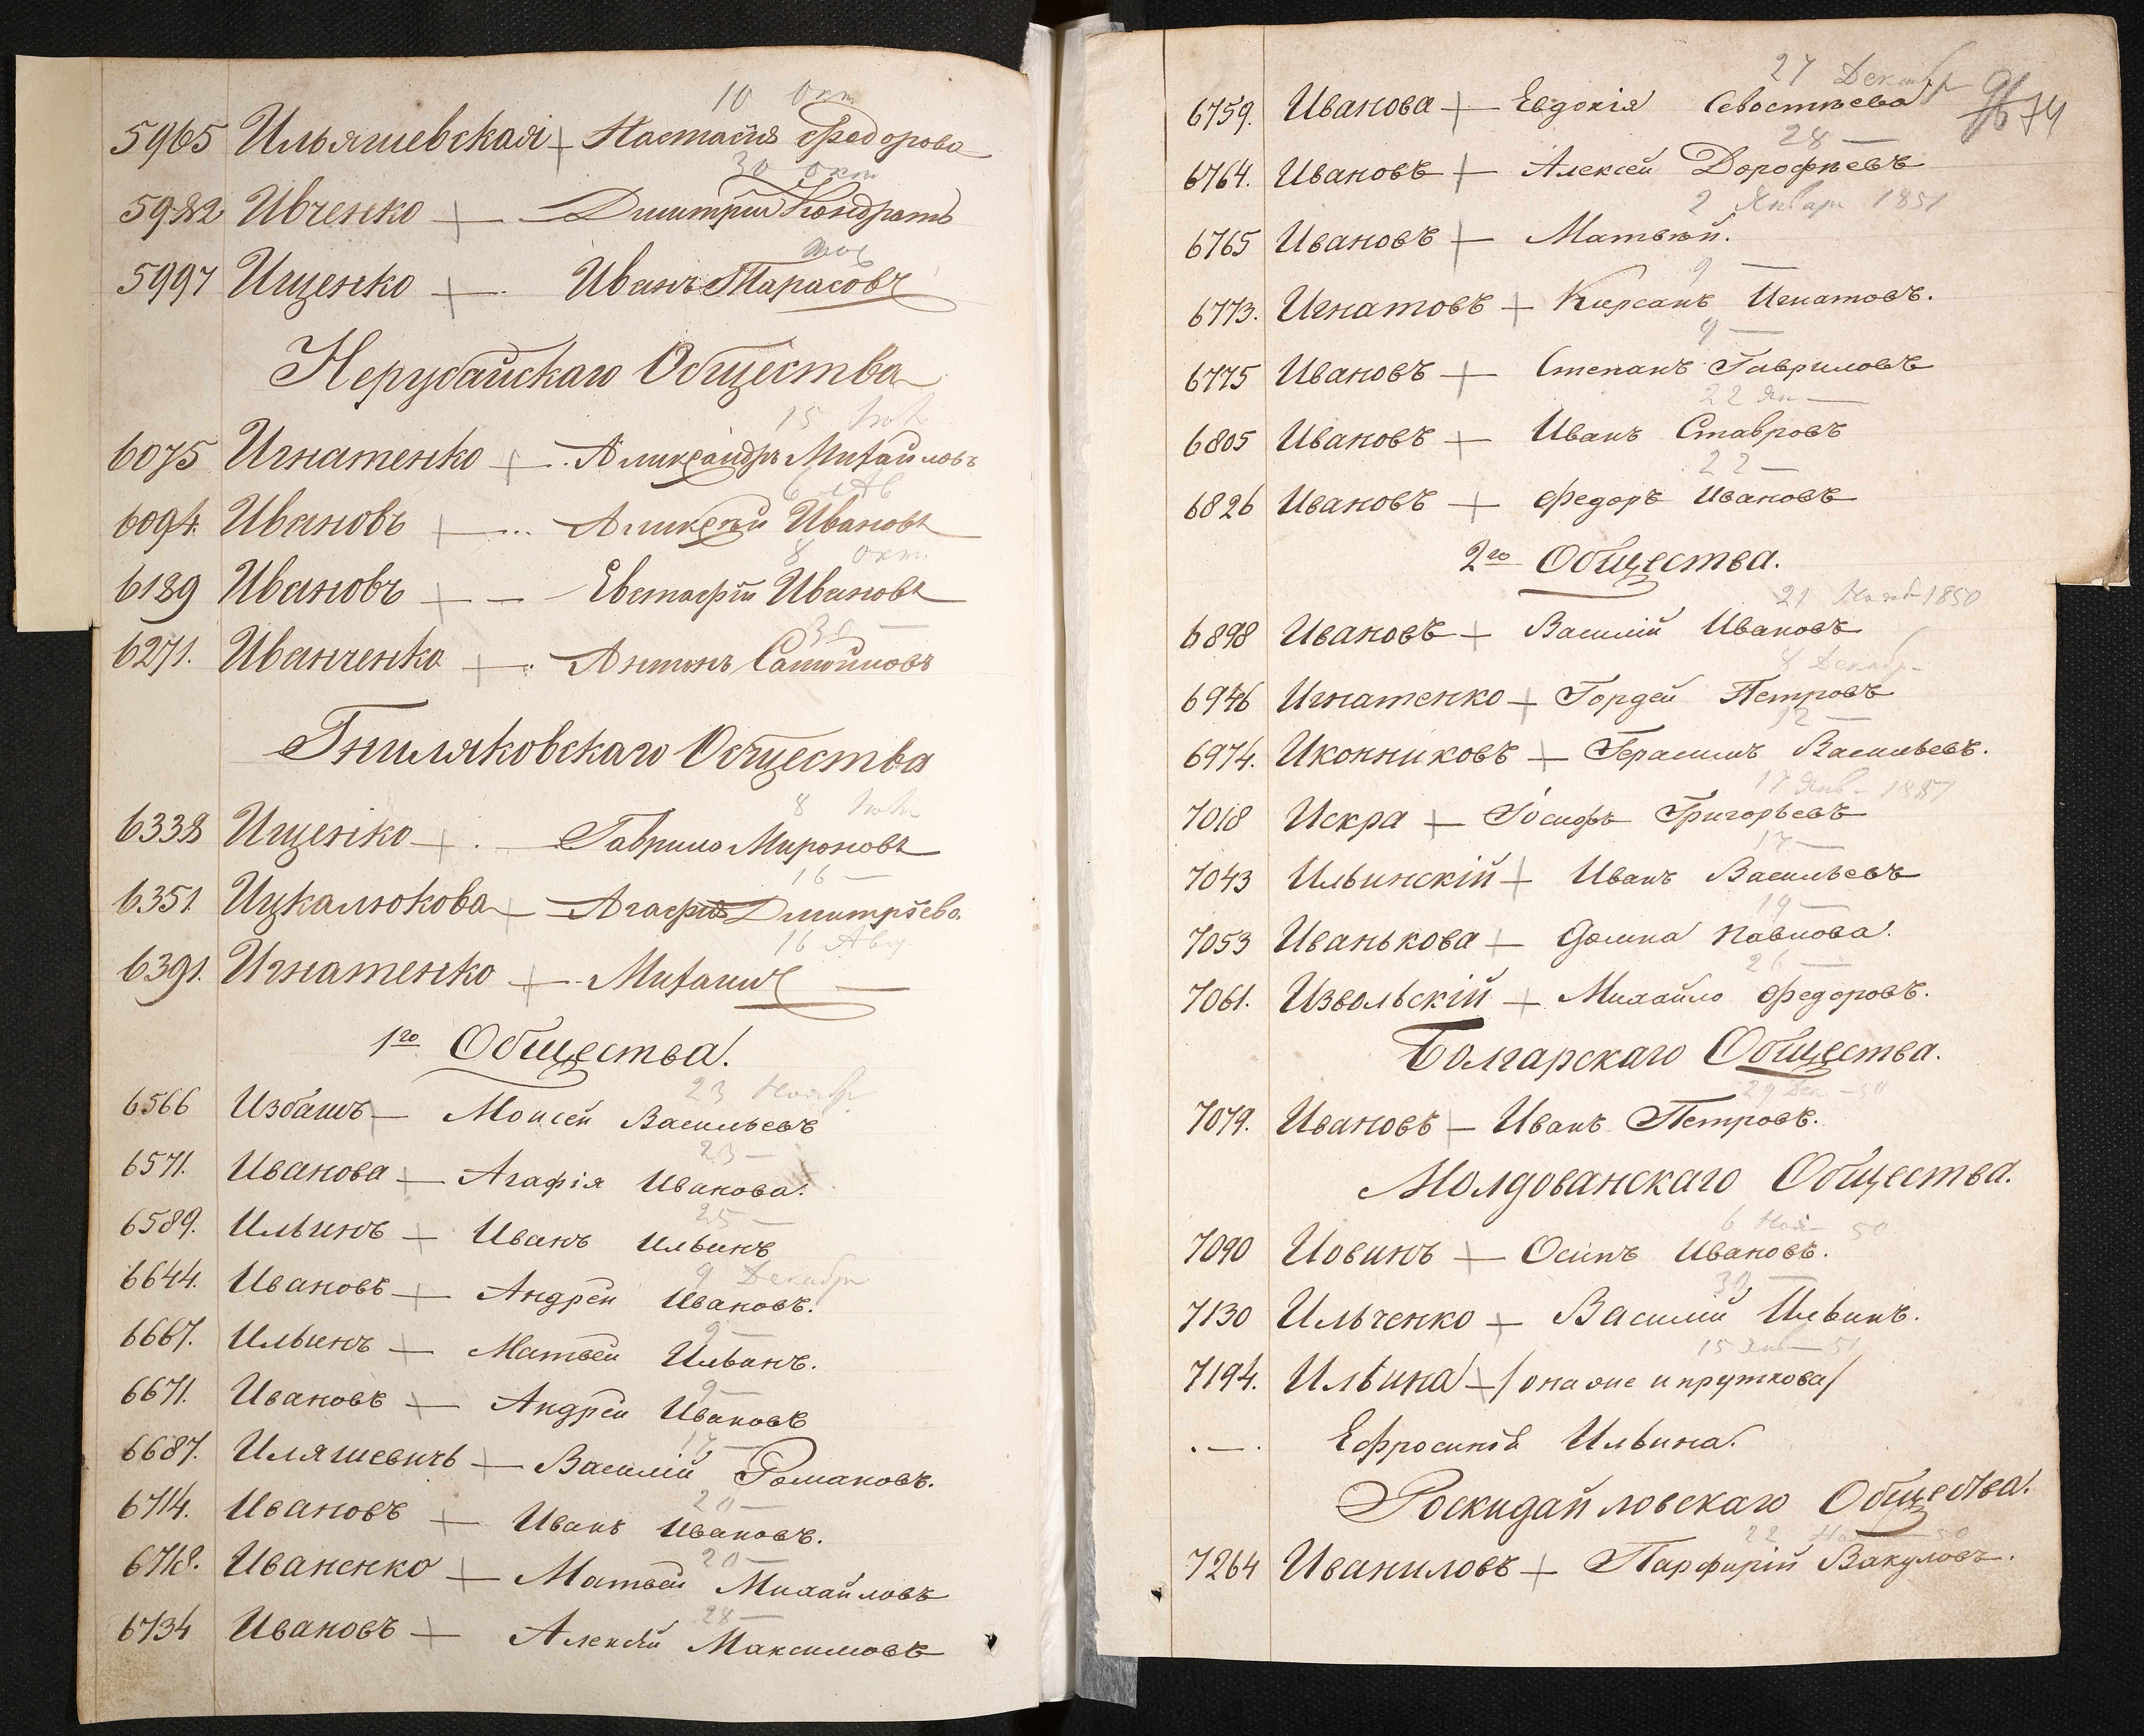 10 Окт
5965 Ильяшевская + Настасія Федорова
30 окт
5982 Ивченко + — Дмитрій Кондрать
5997 Ищенко + — Иванъ Тарасовъ
Нерубайскаго Общества
15
6075 Игнатенко + — Александръ Михайловъ
6
6094. Ивановъ + — Алексѣй Ивановъ
8 окт.
6189 Ивановъ + — Евстафій Ивановъ
30 —
6271. Иванченко + — Антонъ
Гниляковскаго Общества
8
6338 Ищенко + — Гаврило Мироновъ
16 —
6351. Ицкалюкова + — Агафія Дмитріева
16 Авг
6391. Игнатенко + — Михаилъ —
1го Общества.
23 Ноябр
6566 Избашъ — Моисей Васильевъ
23 —
6571. Иванова + — Агафія Иванова.
25 —
6589. Ильинъ + — Иванъ Ильинъ
9 Декабр
6644. Ивановъ + — Андрей Ивановъ.
9 —
6667. Ильинъ + — Матвей Ильинъ.
9 —
6671. Ивановъ + — Андрей Ивановъ
6687. Иляшевичъ + — Василій Романовъ.
20 —
6714. Ивановъ + — Иванъ Ивановъ.
20 —
6718. Иваненко + — Матвей Михайловъ
28 —
6734 Ивановъ + — Алексѣй Максимовъ
27 Декабр
74
6759. Иванова + — Евдокія Севостѣева
28 —
6764. Ивановъ + — Алексей Дорофѣевъ
2 Январ 1851
6765 Ивановъ + — Матвѣй.
9 —
6773. Игнатовъ + — Кирсанъ Игнатовъ.
9 —
6775 Ивановъ + — Степанъ Гавриловъ
22 Ян —
6805 Ивановъ + — Иванъ Ставровъ
22 —
6826 Ивановъ + — Федоръ Ивановъ
2го Общества.
21 Нояб 1850
6898 Ивановъ + — Василій Ивановъ
8 Декабр
6946 Игнатенко + — Гордей Петровъ
12 —
6974. Иконниковъ + — Герасимъ Васильевъ.
17 Янв 1851
7018 Искра + — Іосифъ Григорьевъ
17 —
7043 Ильинскій + — Иванъ Васильевъ
19 —
7053 Иванькова + — Домна Павлова.
26 —
7061. Извольскій + — Михайло Федоровъ.
Болгарскаго Общества.
29 Дек — 50
7079. Ивановъ — Иванъ Петровъ.
Молдованскаго Общества.
6 Ноя 50
7090 Иовинъ + — Осипъ Ивановъ.
30 —
7130 Ильченко + — Василій Ильинъ.
15 Янв — 51
7194. Ильина + — /она же и пруткова/
. — . Ефросинія Ильина.
Роскидайловскаго Общества.
22 Ноя 50
7264 Иваниловъ + — Парфирій Вакуловъ.